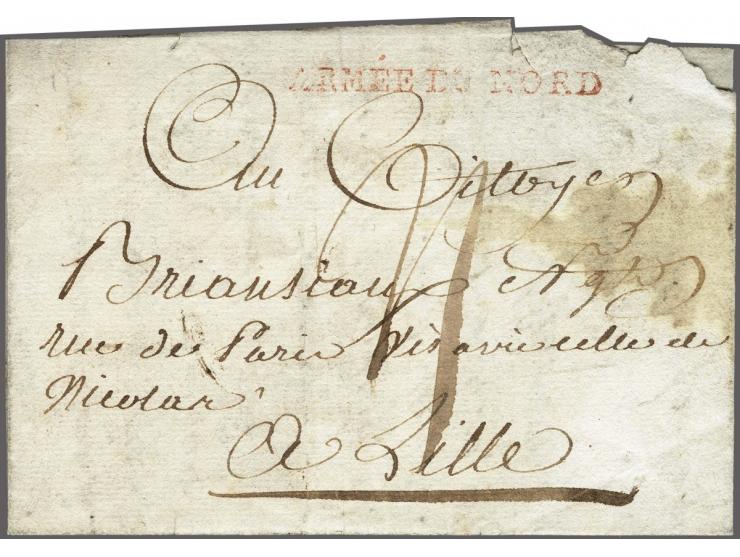 ARMÉE DU NORD
Au Citoyen
Briansiaux
rue de Paris vis a vis celle de
Nicolas
a Lille